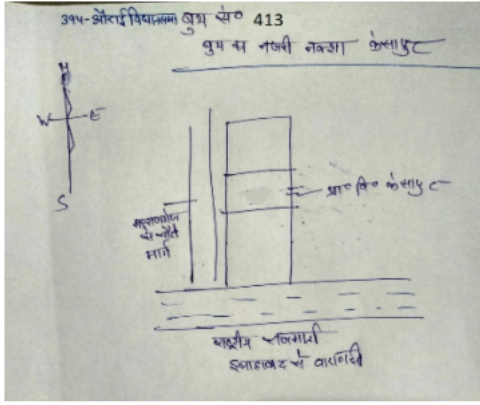 394-औराई विधानसभा बुथ सं० 413
बुथ का नजरी नक्शा केसापुर
N
W E
S
प्रा० वि० केसापुर
महराजगंज
से चौरी
मार्ग
राष्ट्रीय राजमार्ग
इलाहाबाद से वाराणसी